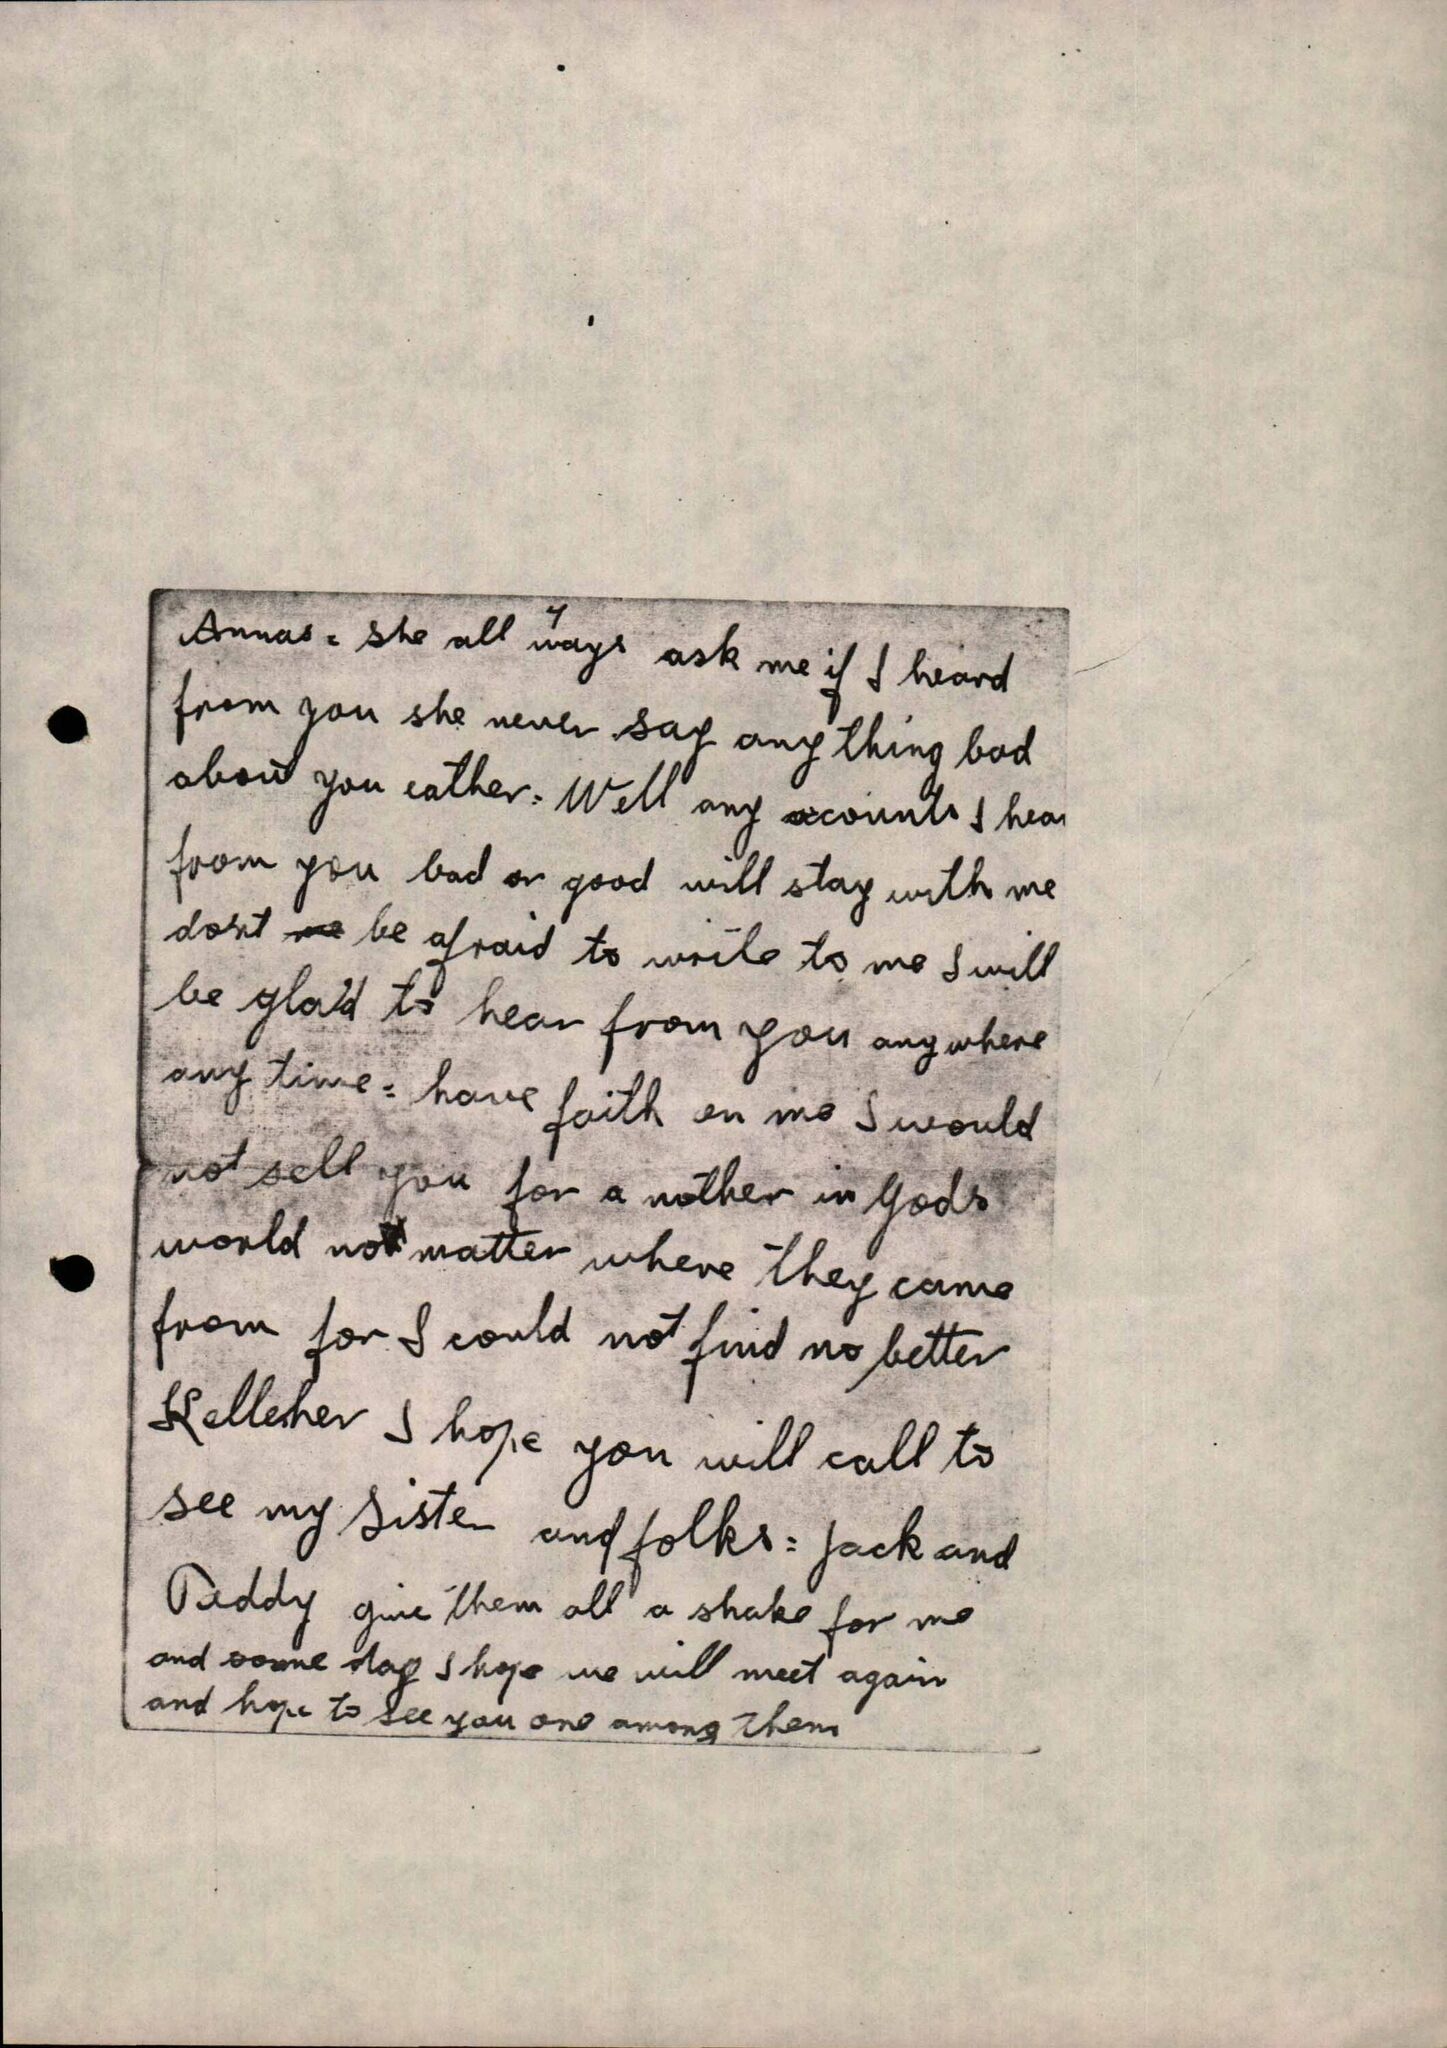 4
Annas = she all ways ask me if I heard
from you she never say anything bad
about you eather = Well any acounts I hear
from you bad or good will stay with me
dont me be afraid to write to me I will
be glad to hear from you anywhere
any time = have faith en me I would
not sell you for a nother in Gods
world not matter where they came
from for I could not find no better
Kelleher I hope you will call to
see my Sister and folks = Jack and
Teddy give them all a shake for me
and some day I hope we will meet again
and hope to see you one among them